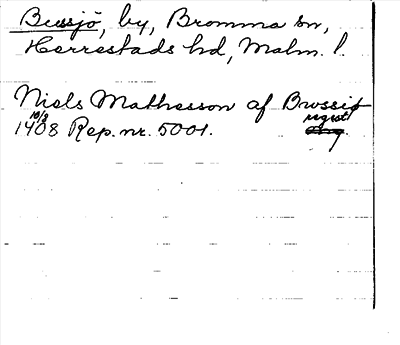 Bussjö, by, Bromma sn,
Herrestads hd, Malm. l.
Niels Mathesson af Brossiø
10/8 regest
1408 Rep. nr. 5001.